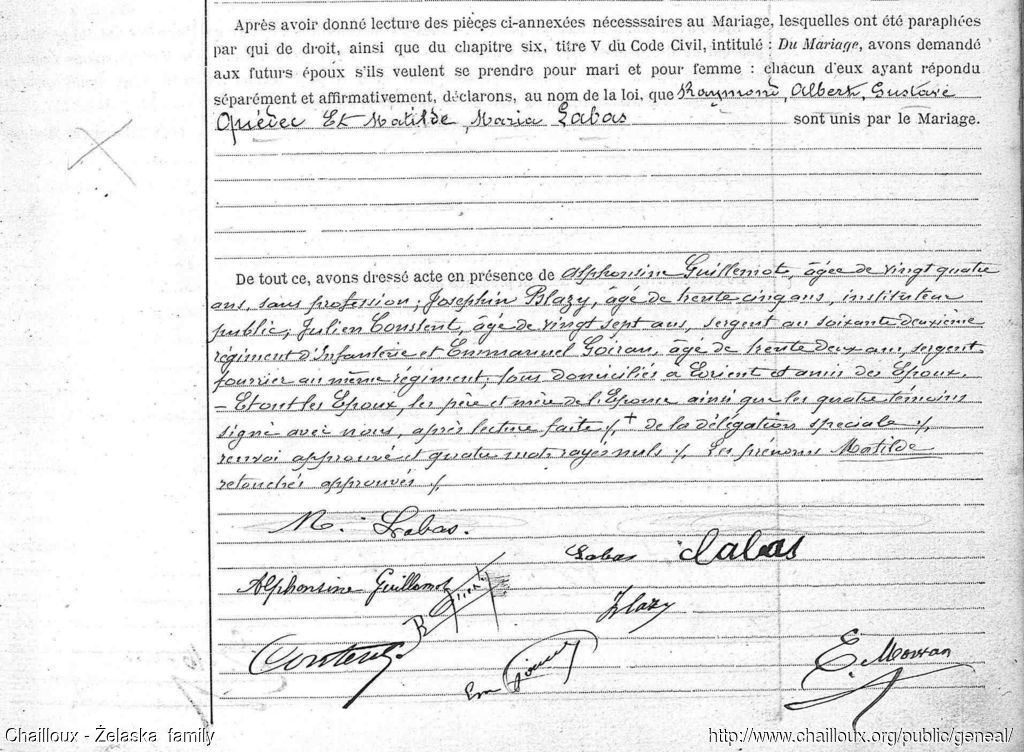 Après avoir donné lecture des pièces ci-annexées nécesssaires au Mariage, lesquelles ont été paraphées
par qui de droit, ainsi que du chapitre six, titre V du Code Civil, intitulé : Du Mariage, avons demandé
aux futurs époux s'ils veulent se prendre pour mari et pour femme : chacun d'eux ayant répondu
séparément et affirmativement, déclarons, au nom de la loi, que Raymond, Albert, Gustave
Quérec Et Matilde, Maria Labas sont unis par le Mariage.
De tout ce, avons dressé acte en présence de Alphonsine Guillemot, âgée de vingt quatre
ans, sans profession; Joséphin Blazy, âgé de trente cinq ans, instituteur
public, Julien Constent, âgé de vingt sept ans, sergent au soixante deuxième
régiment d'Infanterie et Emmanuel Goiran, âgé de trente deux ans, sergent
fourrier au même régiment, tous domiciliés à Lorient et amis des Epoux.
- Et ont les Epoux, les père et mère de l'Epouse ainsi que les quatre témoins
signé avec nous, après lecture faite ./. + de la délégation speciale ./.
renvoi approuvé et quatre mots rayés nuls ./. Les prénoms Matilde
retouchés approuvés ./.
M. Labas.
Labas Labas
Alphonsine Guillemot
Blazy
Constent
Em
E. Morvan
Chailloux - Żelaska family
http://www.chailloux.org/public/geneal/